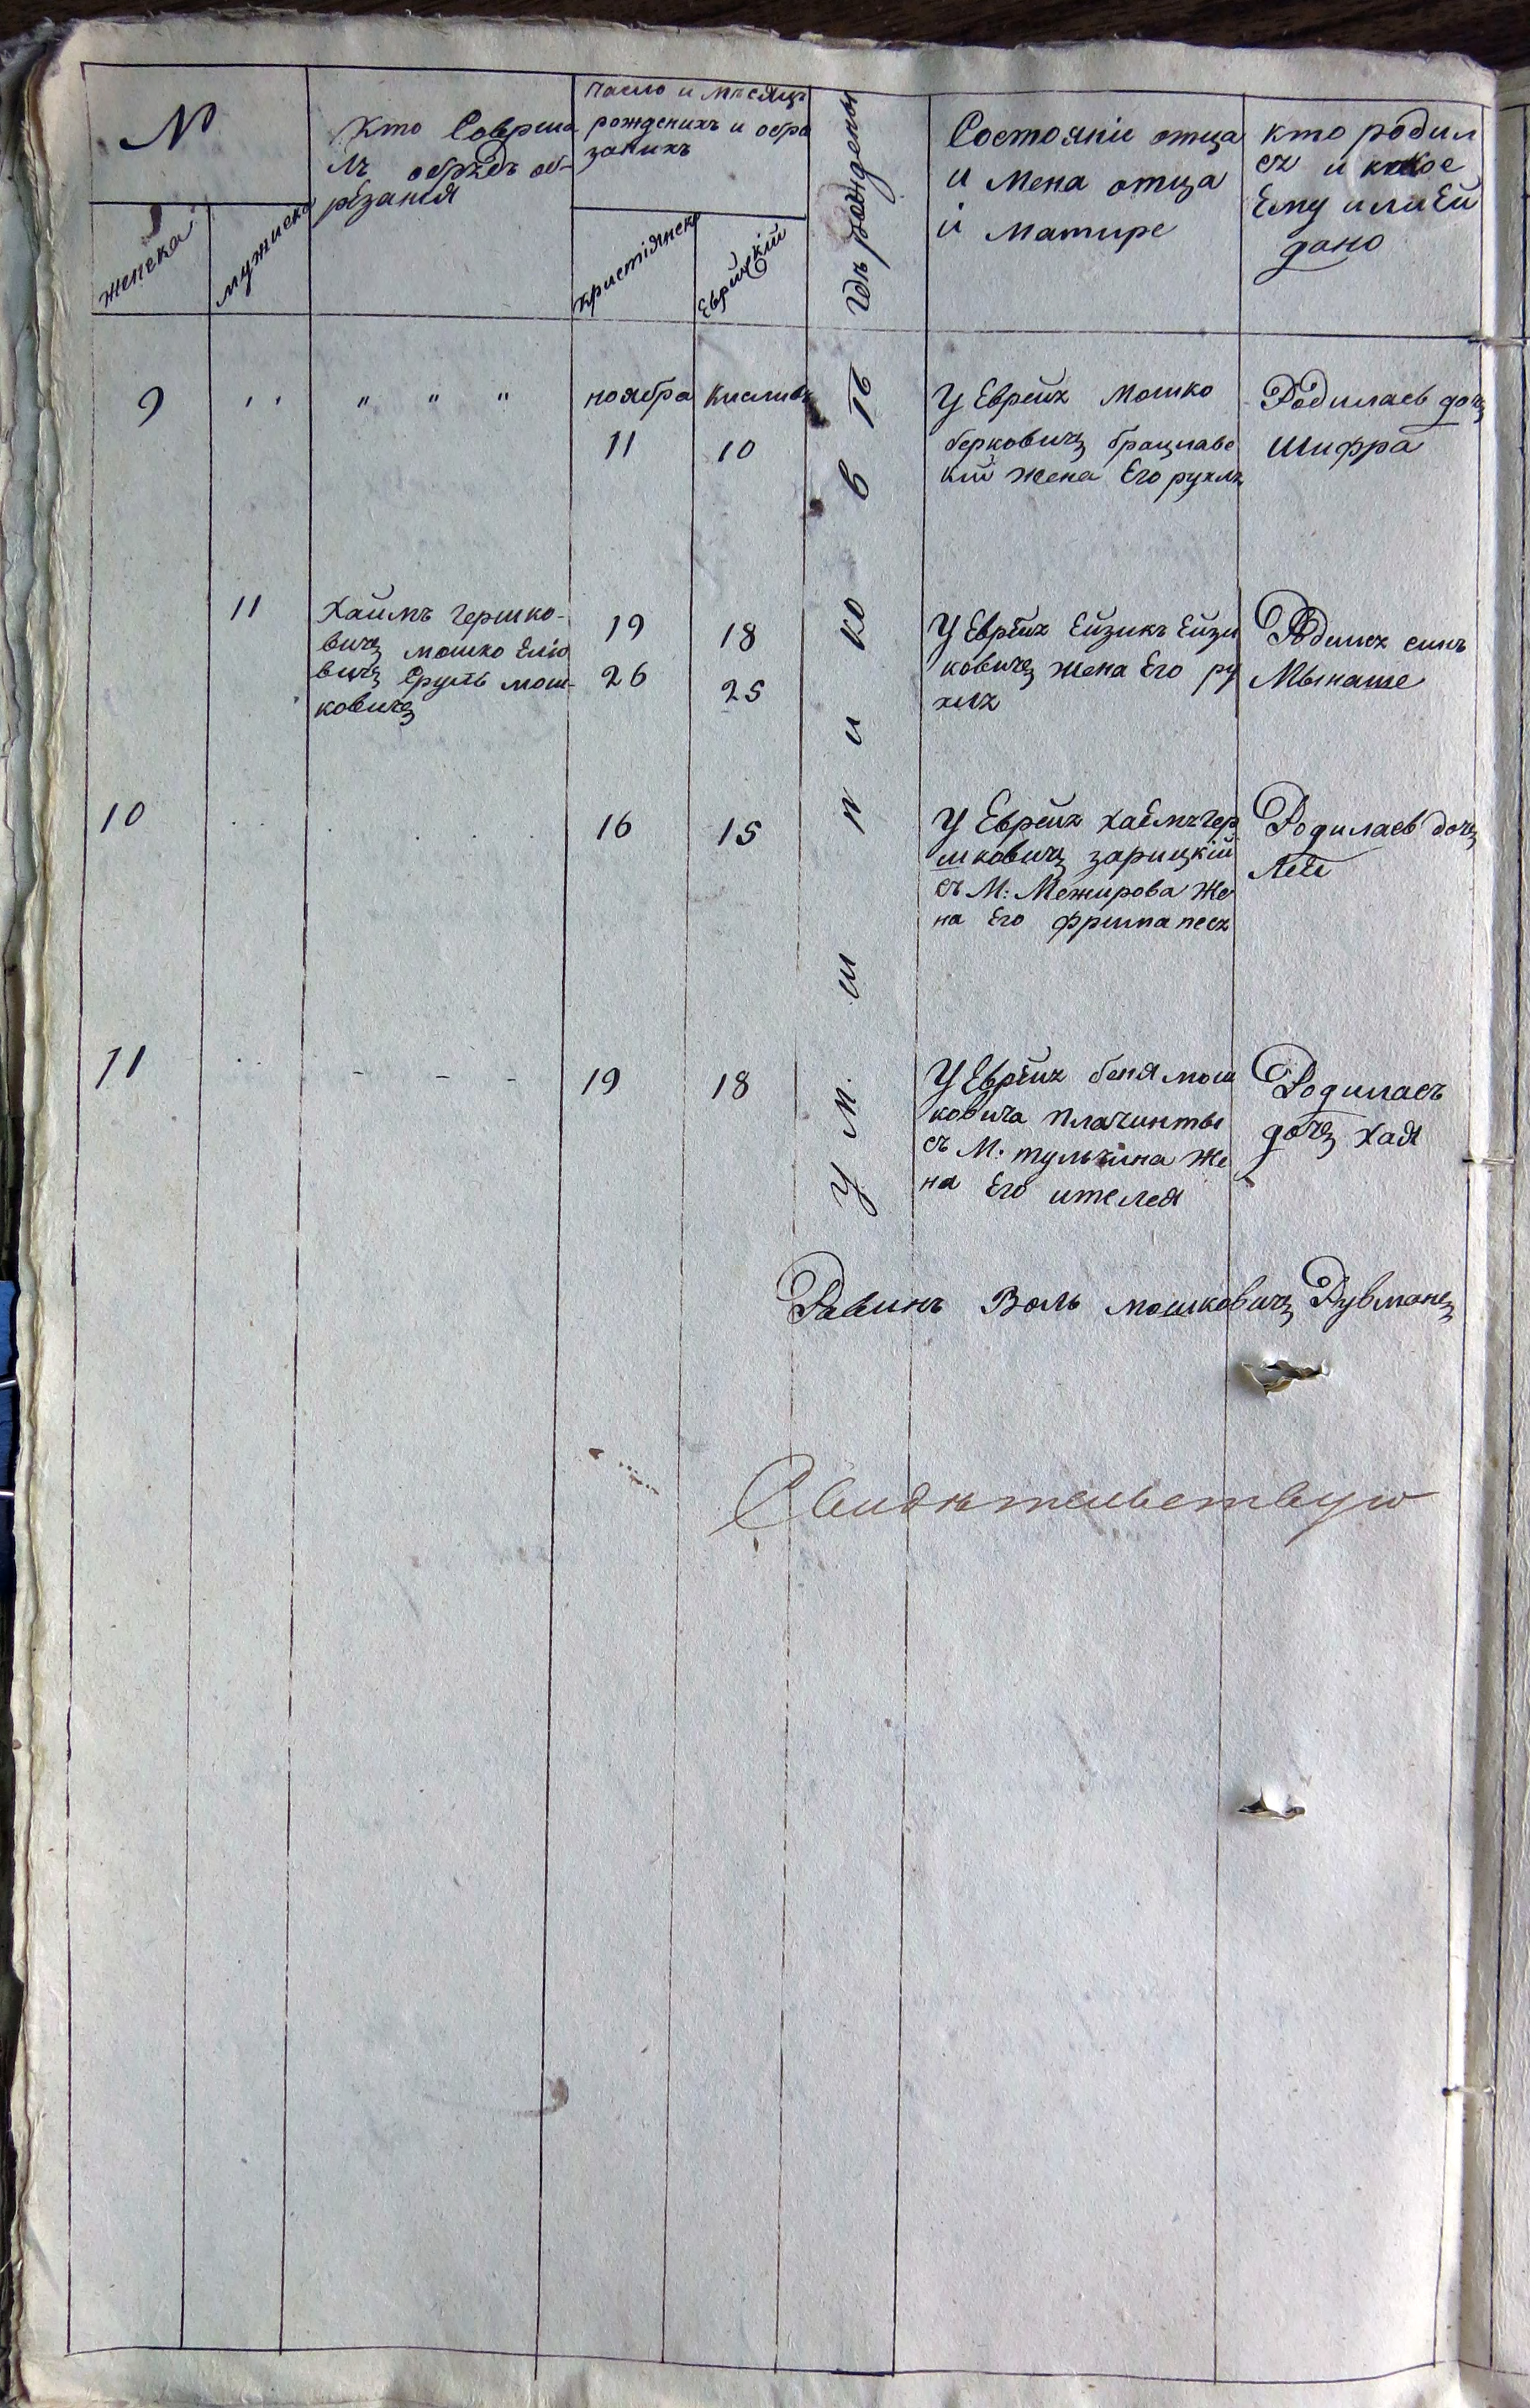 №
женска
мужиска
Кто Соврша
лъ обрядъ об-
рѣзанія
число и мѣсяцъ
рожденихъ и обра
заникъ
христіянск
Еврйскій
гдѣ рождены
Состояніе отца
и Мена отца
і матире
кто родил
ся и какое
Ему или Ей
дано
9
" "
" " "
ноября
11
кислива
10
У Еврея Мошко
берковичъ брацлавс
кій жена Его рухля
Родилась дочъ
Шифра
11
Хаимъ Гершко-
вичъ мошко Еліо
вичъ Сруль мош-
ковичъ
19
26
18
25
У Еврея Ейзикъ Ейзи
ковичъ жена Его ру
хля
Родился синъ
Мынаше
10
16
15
У Еврея Хаемъ Гер
шковичъ зарицкій
съ М: Межирова Же
на Его Фрима песя
Родилась дочъ
Лея
11
- - -
19
18
У Еврея беня мош
ковича плачинты
съ М: тульчина Же
на Его ителея
Родиласъ
дочъ Хая
У М. Шпиковѣ
Равинъ Волъ мошковичъ Рувманъ
Свидѣтельствую